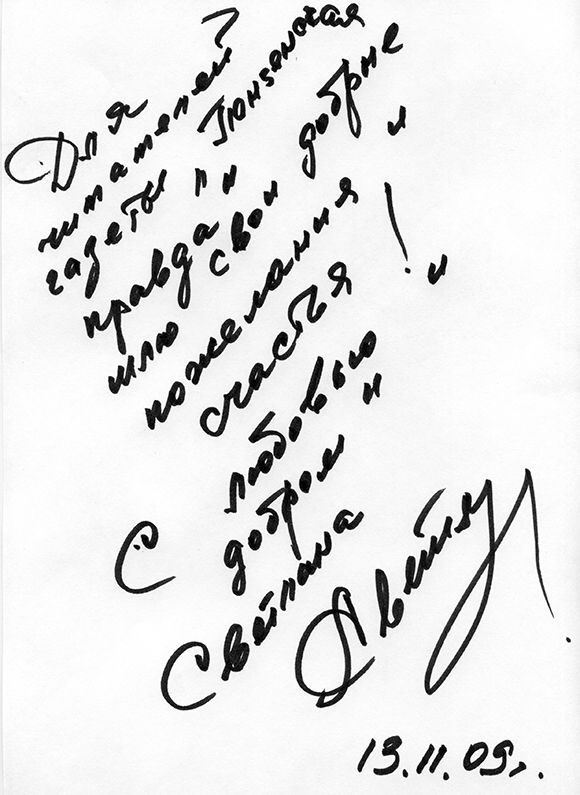 Для
читателей
газеты "Пензенская
правда"
шлю свои добрые и
пожелания
счастья !
С любовью и
добром"
Светлана
13.11.09г.